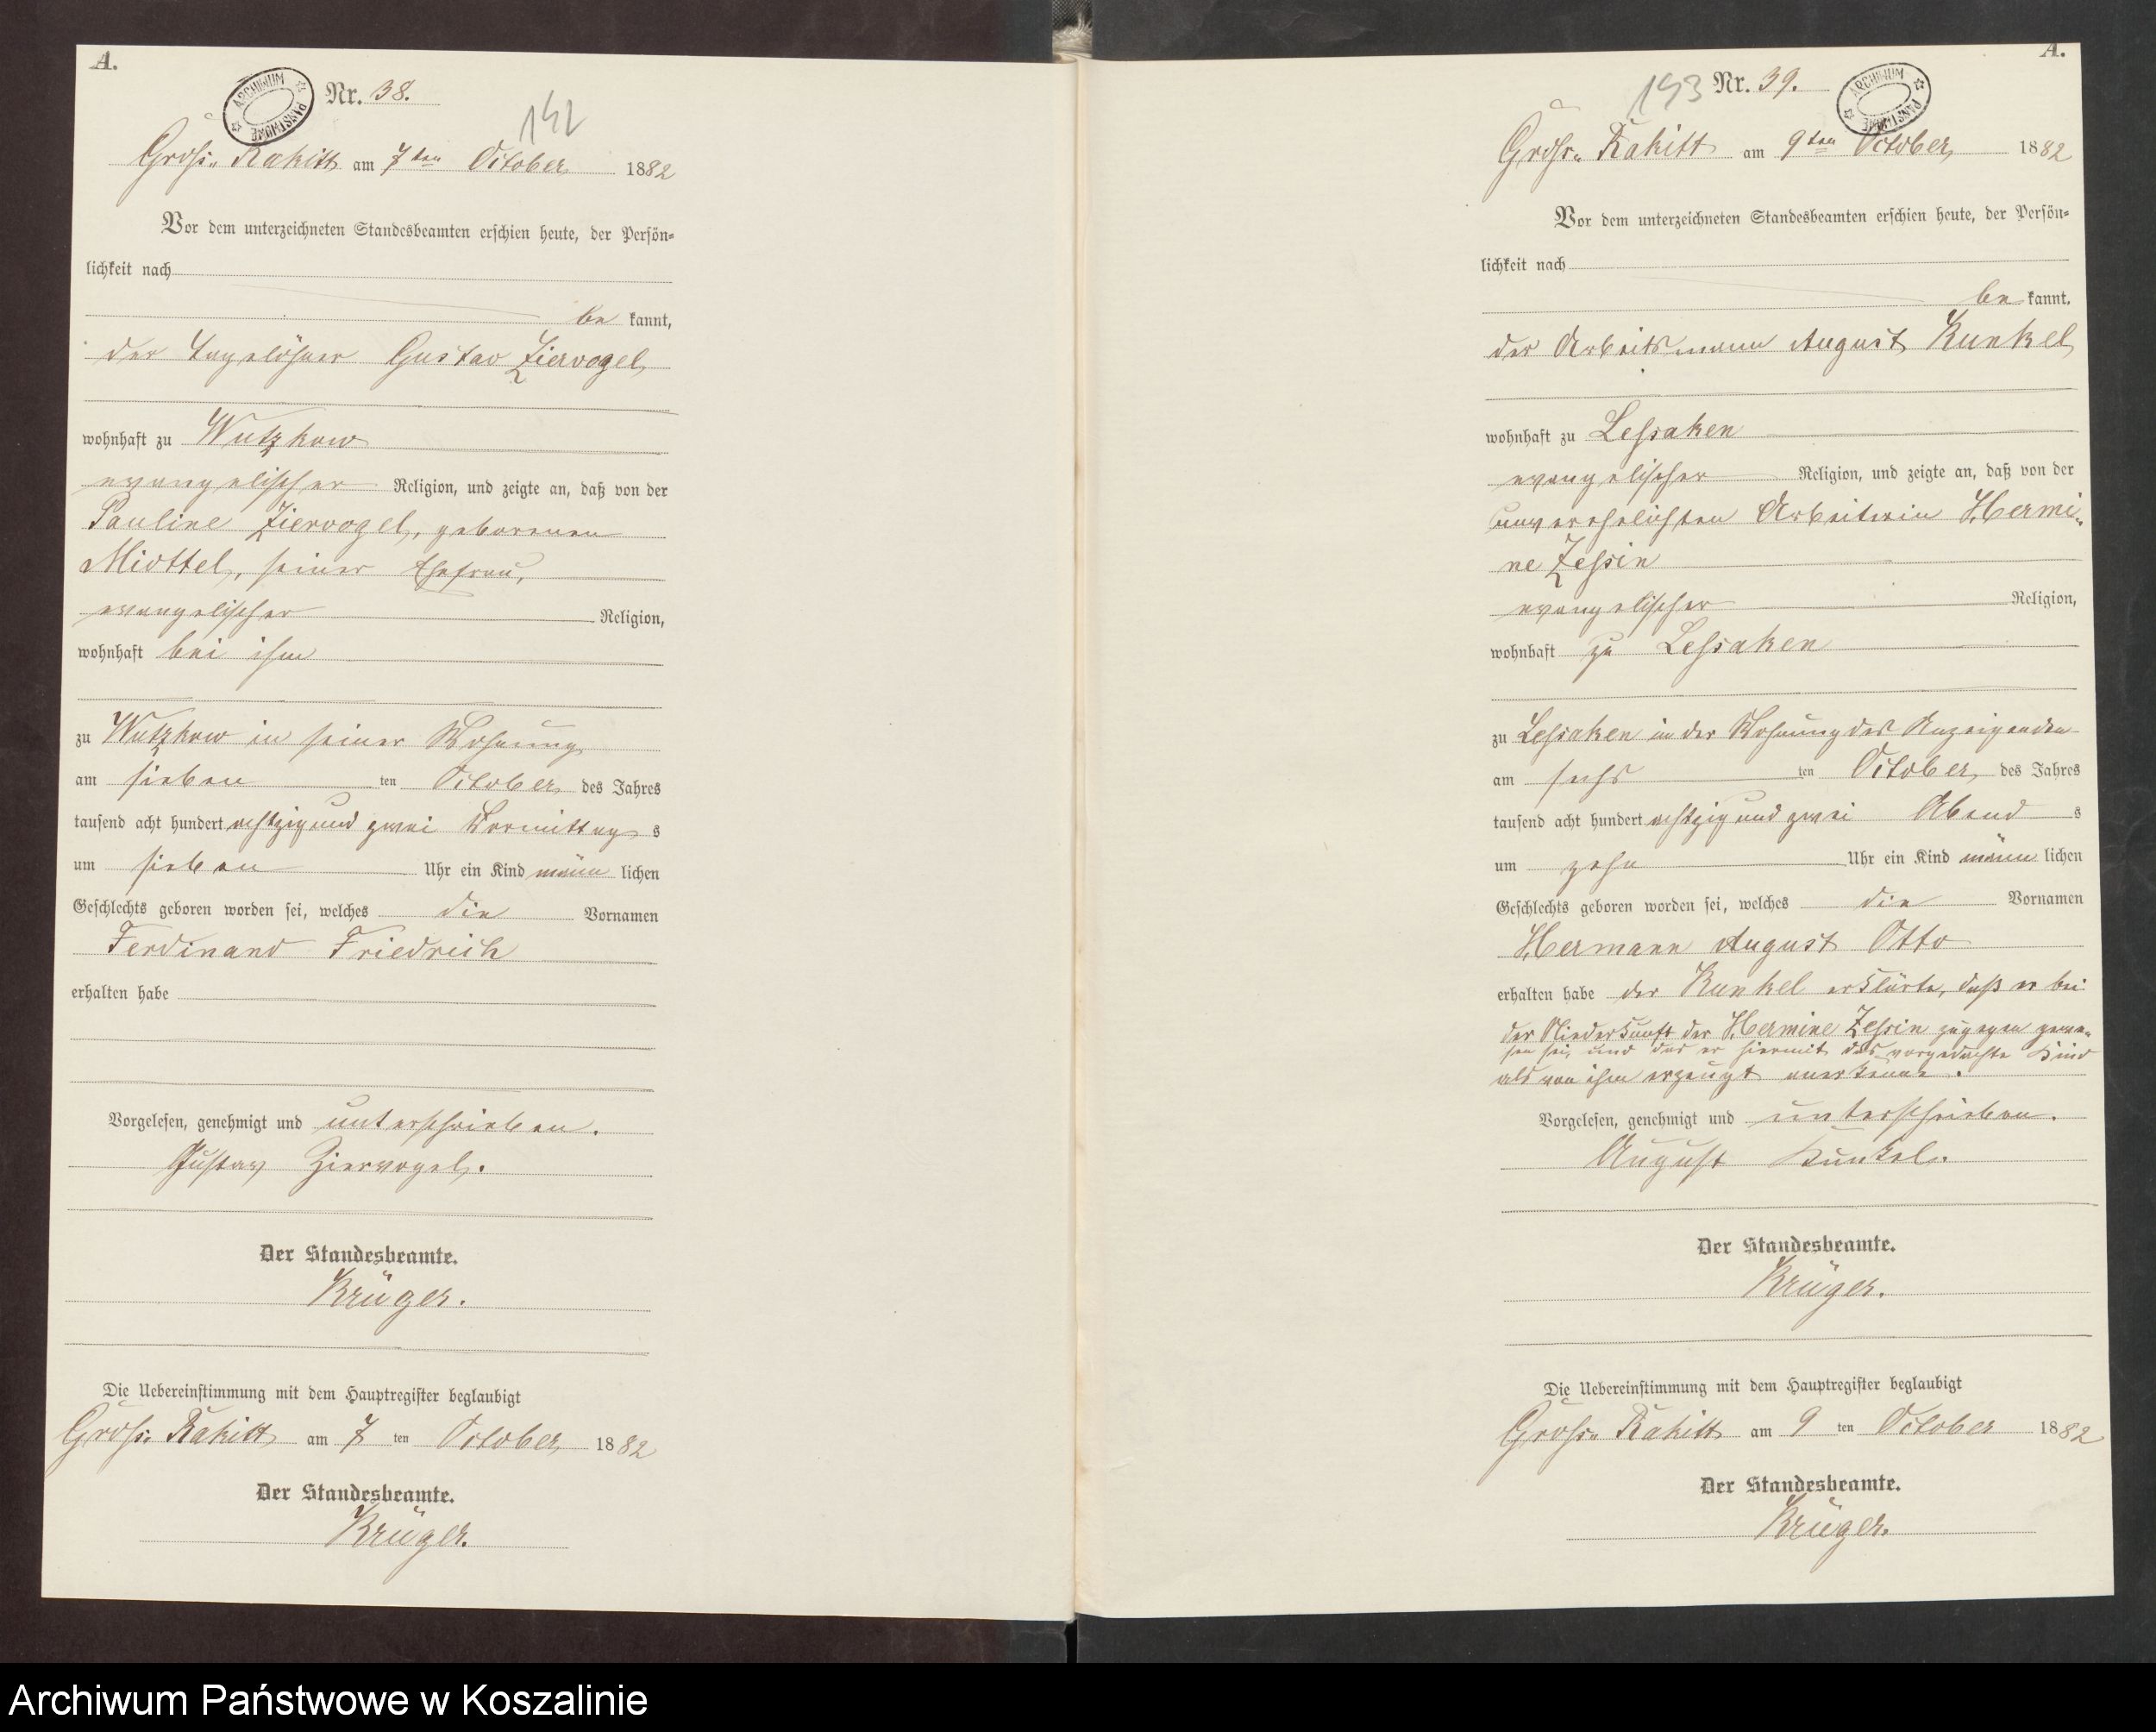 A.
ARCHIWUM PAŃSTWOWE
Nr. 38.
142
Gross- Rakitt am 7ten October 1882
Vor dem unterzeichneten Standesbeamten erschien heute, der Persön-
lichkeit nach
be kannt,
der Tagelöhner Gustav Ziervogel,
wohnhaft zu Wutzkow
evangelischer Religion, und zeigte an, daß von der
Pauline Ziervogel, geborenen
Miottel, seiner Ehefrau,
evangelischer Religion,
wohnhaft bei ihm
zu Wutzkow in seiner Wohnung
am sieben ten October des Jahres
tausend acht hundert achtzig und zwei Vormittag s
um sieben Uhr ein Kind männ lichen
Geschlechts geboren worden sei, welches die Vornamen
Ferdinand Friedrich
erhalten habe
Vorgelesen, genehmigt und unterschrieben.
Gustav Ziervogel.
Der Standesbeamte.
Krüger.
Die Uebereinstimmung mit dem Hauptregister beglaubigt
Gross- Rakitt am 7 ten October 1882
Der Standesbeamte.
Krüger.
A.
193 Nr. 39.
ARCHIWUM PAŃSTWOWE
Gross- Rakitt am 9ten October 1882
Vor dem unterzeichneten Standesbeamten erschien heute, der Persön-
lichkeit nach
be kannt,
der Arbeitsmann August Kunkel
wohnhaft zu Lessaken
evangelischer Religion, und zeigte an, daß von der
unverehelichten Arbeiterin Hermi-
ne Zessin
evangelischer Religion,
wohnhaft zu Lessaken
zu Lessaken in der Wohnung des Anzeigenden
am sechs ten October des Jahres
tausend acht hundert achtzig und zwei Abend s
um zehn Uhr ein Kind männ lichen
Geschlechts geboren worden sei, welches die Vornamen
Hermann August Otto
erhalten habe der Kunkel erklärte, daß er bei
der Niederkunft der Hermine Zessin zugegen gewe-
sen sei, und das er hiermit das vorgedachte Kind
als von ihm erzeugt anerkenne.
Vorgelesen, genehmigt und unterschrieben.
August Kunkel.
Der Standesbeamte.
Krüger.
Die Uebereinstimmung mit dem Hauptregister beglaubigt
Gross- Rakitt am 9 ten October 1882
Der Standesbeamte.
Krüger.
Archiwum Państwowe w Koszalinie